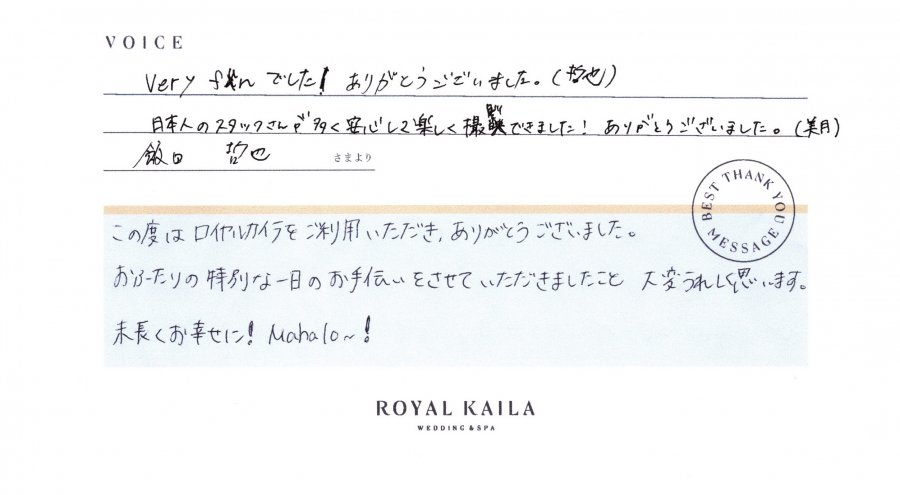 VOICE
Very fun でした! ありがとうございました。(哲也)
日本人のスタッフさんが多く安心して楽しく撮影できました! ありがとうございました。(美月)
飯田 哲也 さまより
BEST THANK YOU MESSAGE
この度はロイヤルカイラをご利用いただき、ありがとうございました。
おふたりの特別な一日のお手伝いをさせていただきましたこと 大変うれしく思います。
末長くお幸せに! Mahalo~!
ROYAL KAILA
WEDDING & SPA